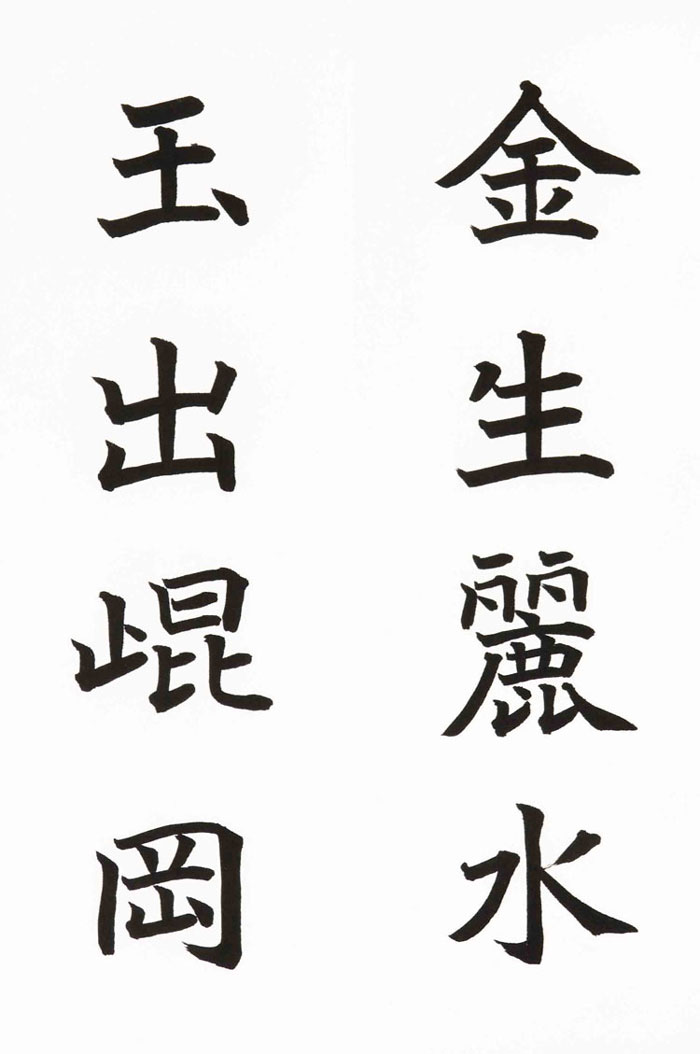 金生麗水
玉出崐岡